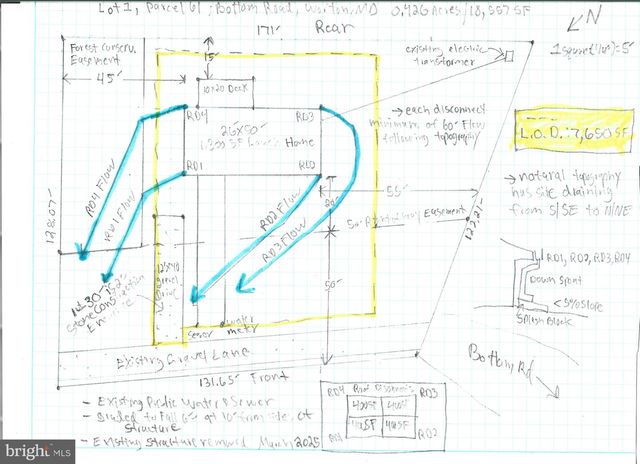 Lot 1, Parcel 61, Bottom Road, Worton, MD 0.426 Acres/18,557 SF
171'
Rear
N
1 square (1/10") = 5'
Forest conserv.
Easement
45'
15'
10x20 Deck
existing electric
transformer
RD4
RD3
26x50'
1,300 SF
Home
RD1
RD2
→ each disconnect
minimum of 60' Flow
following topography
L.O.D. 7,650 SF
→ natural topography
has site draining
from S/SE to N/NE
RD4 Flow
RD1 Flow
RD2 Flow
RD3 Flow
55'
Easement
128.07'
122.21'
50'
Gravel
Drive
Entrance
sewer
water
meter
RD1, RD2, RD3, RD4
Down Spout
<5% slope
Splash Block
Existing Gravel Lane
131.65' Front
Bottom Rd
- Existing Public Water & Sewer
- Graded to Fall 6" at 10' from side of
structure
- Existing structure removed March 2025
RD4 Roof Disconnects RD3
400SF 400SF
400SF 400SF
RD1 RD2
bright MLS